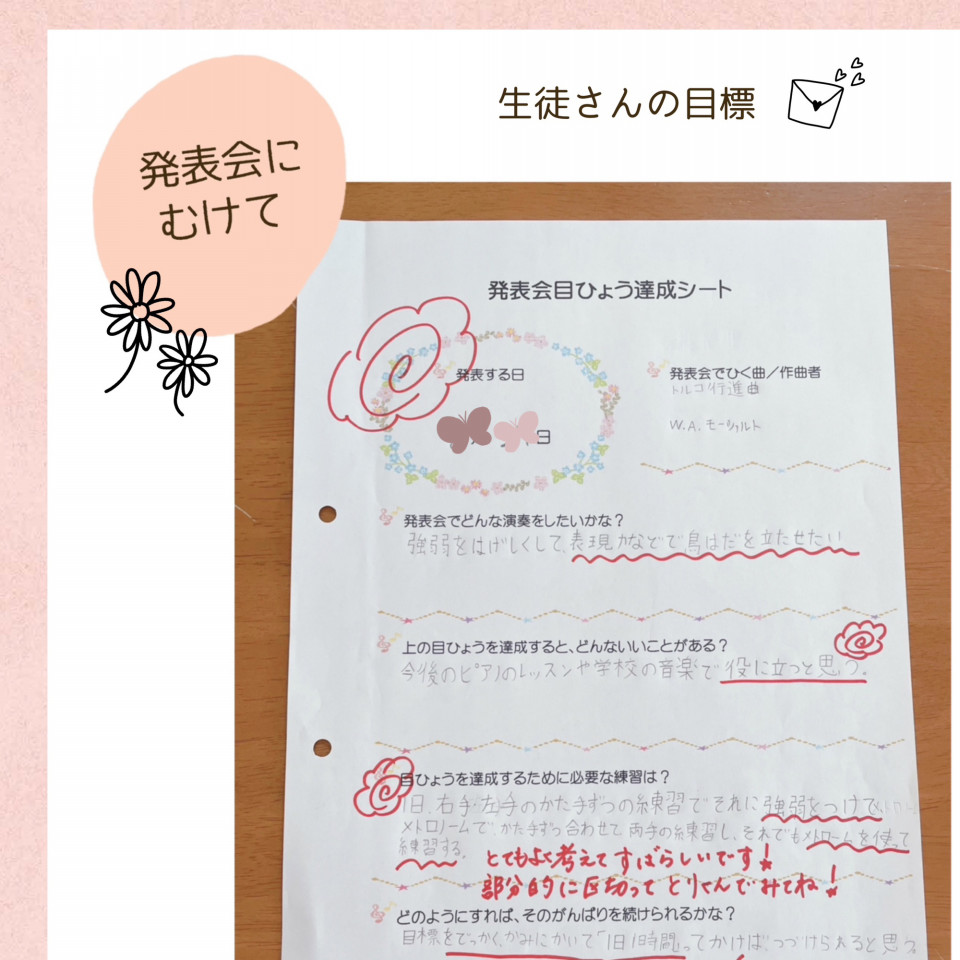 生徒さんの目標
発表会に
むけて
発表会目ひょう達成シート
発表する日
日
発表会でひく曲／作曲者
トルコ行進曲
W.A.モーツァルト
発表会でどんな演奏をしたいかな？
強弱をはげしくして、表現力などで鳥はだを立たせたい
上の目ひょうを達成すると、どんないいことがある？
今後のピアノのレッスンや学校の音楽で役に立つと思う。
目ひょうを達成するために必要な練習は？
1日、右手・左手のかた手ずつの練習でそれに強弱をつけて
メトロノームで、かた手ずつ合わせて両手の練習し、それでもメトロームを使って
練習する。
とてもよく考えてすばらしいです！
部分的に区切ってとりくんでみてね！
どのようにすれば、そのがんばりを続けられるかな？
目標をでっかく、かみにかいて「1日1時間」ってかけば、つづけられると思う